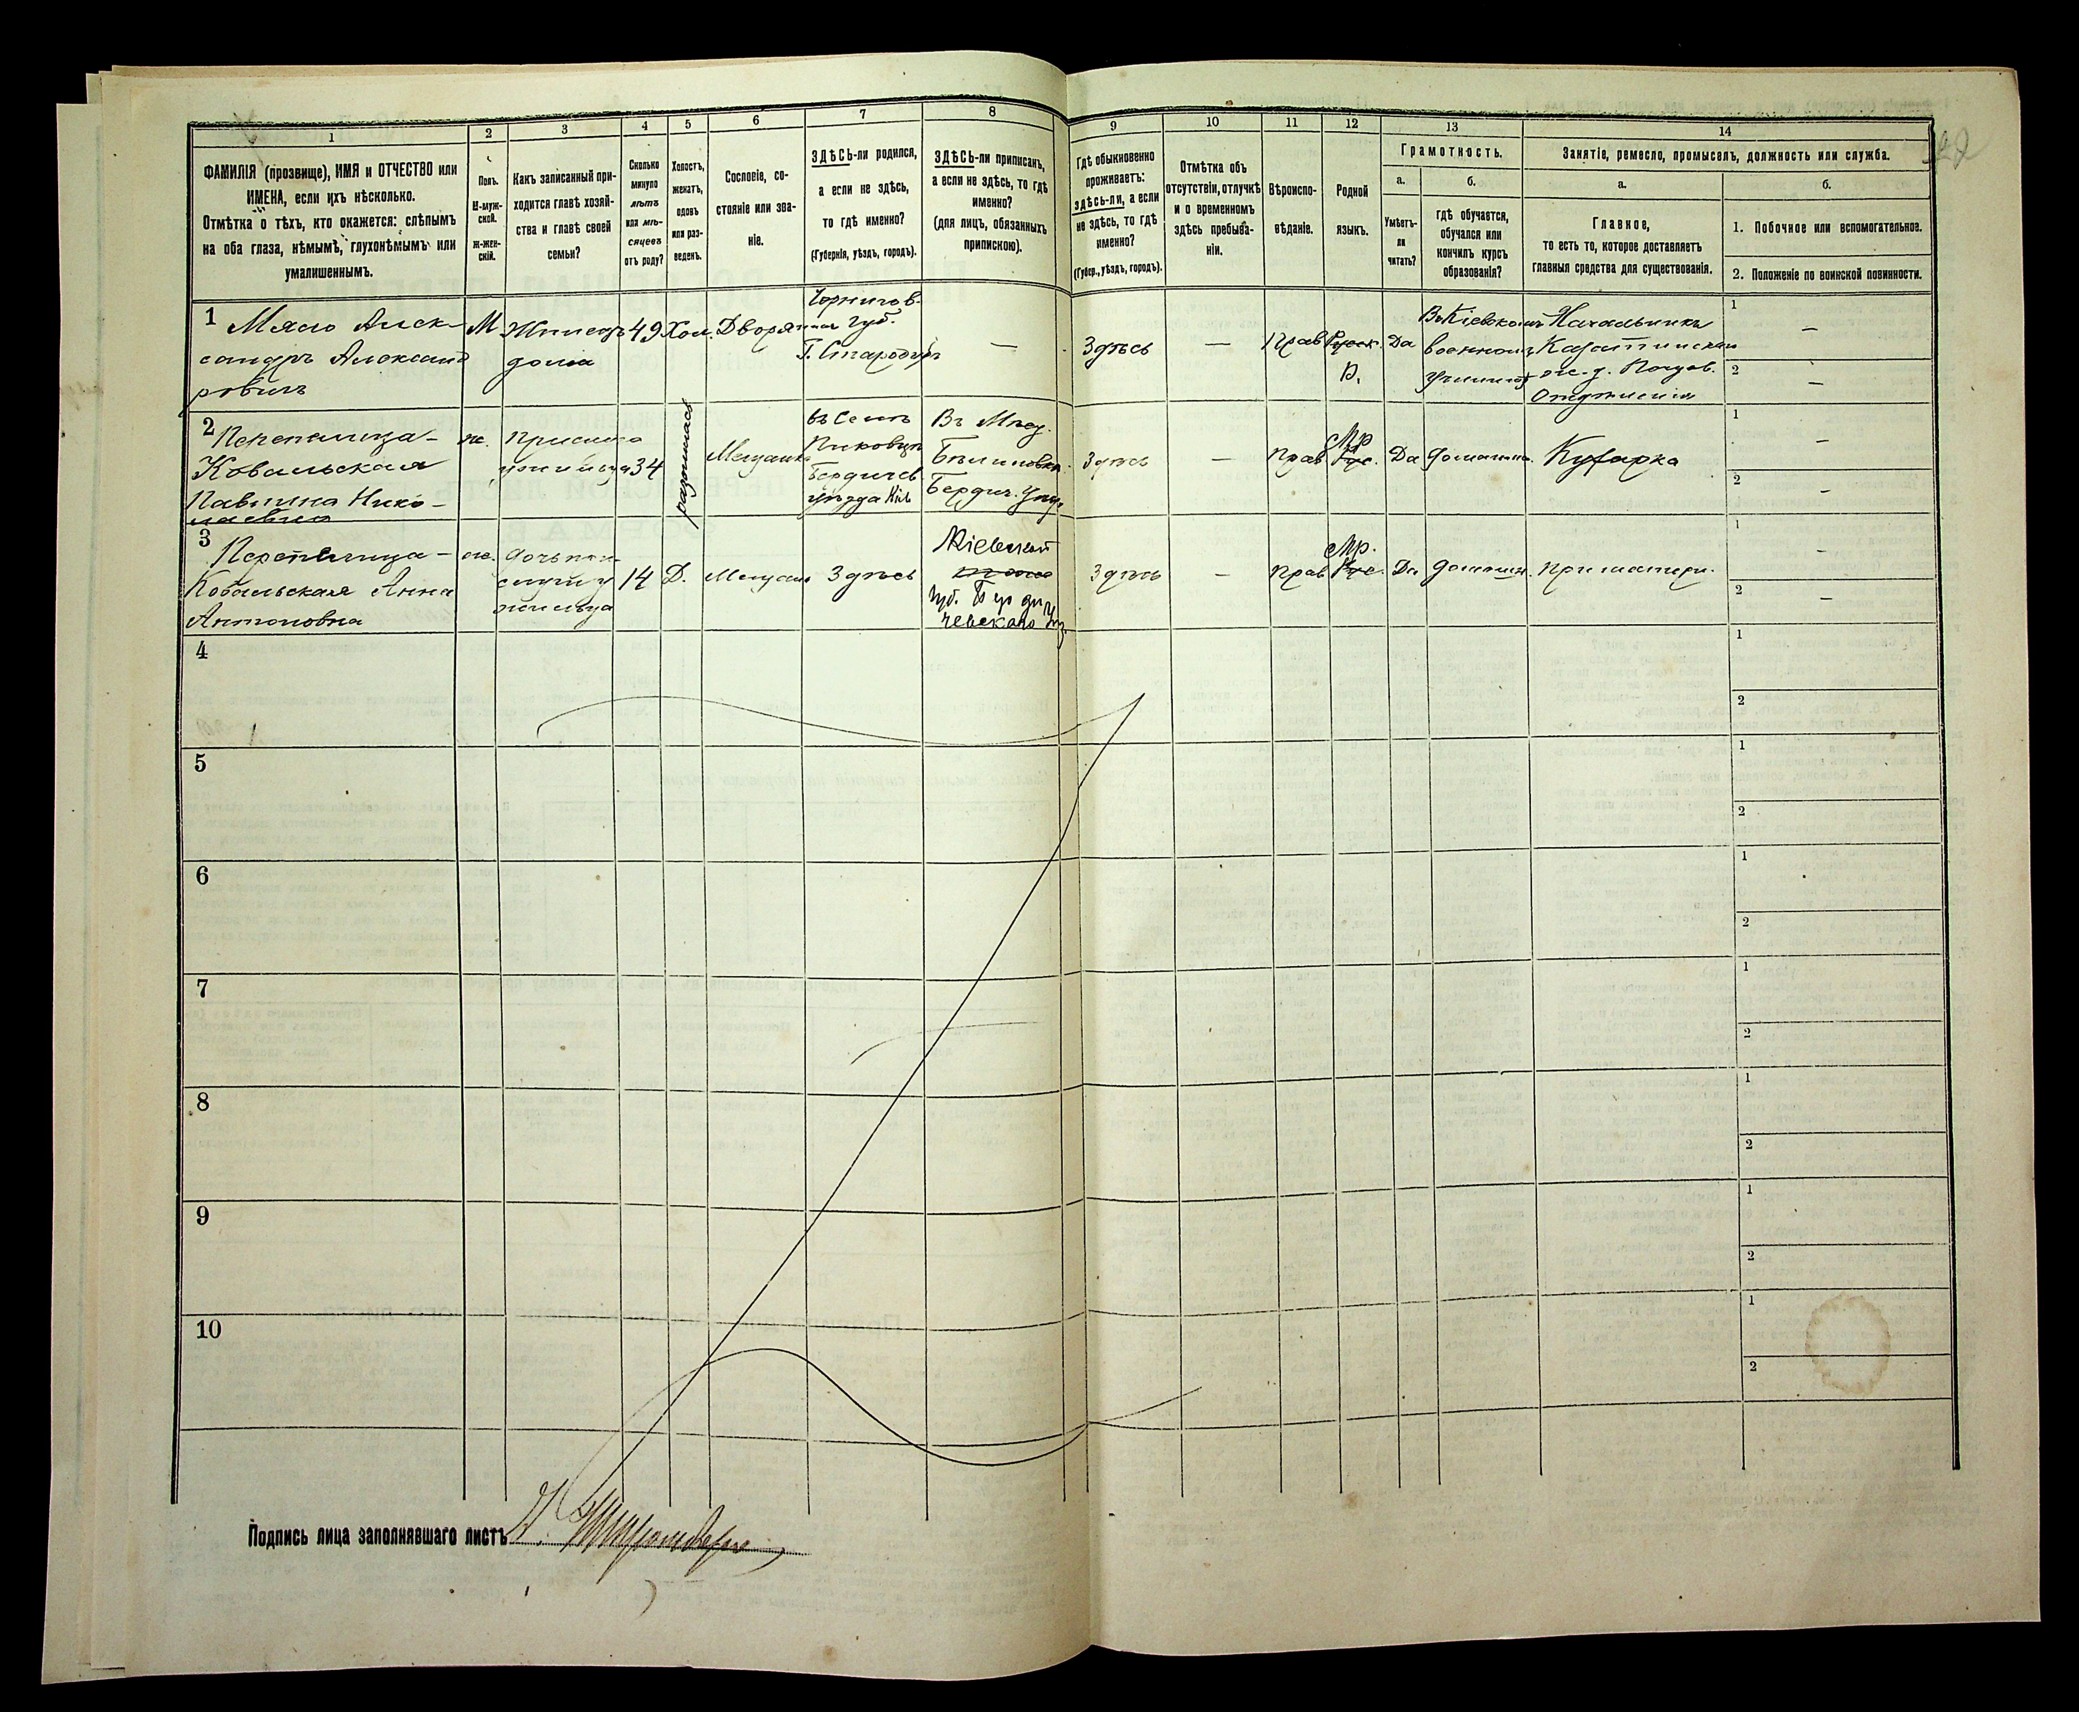 1
2
3
4
5
6
7
8
9
10
11
12
13
14
ФАМИЛІЯ (прозвище), ИМЯ и ОТЧЕСТВО или
ИМЕНА, если ихъ нѣсколько.
Отмѣтка о тѣхъ, кто окажется: слѣпымъ
на оба глаза, нѣмымъ, глухонѣмымъ или
умалишеннымъ.
Полъ.
М-муж-
ской.
ж-жен-
скій.
Какъ записанный при-
ходится главѣ хозяй-
ства и главѣ своей
семьи?
Сколько
минуло
лѣтъ
или мѣ-
сяцевъ
отъ роду?
Холостъ,
женатъ,
вдовъ
или раз-
веденъ.
Сословіе, со-
стояніе или зва-
ніе.
ЗДѢСЬ-ли родился,
а если не здѣсь,
то гдѣ именно?
(Губернія, уѣздъ, городъ).
ЗДѢСЬ-ли приписанъ,
а если не здѣсь, то гдѣ
именно?
(для лицъ, обязанныхъ
припискою).
Гдѣ обыкновенно
проживаетъ:
здѣсь-ли, а если
не здѣсь, то гдѣ
именно?
(Губер., уѣздъ, городъ).
Отмѣтка объ
отсутствіи, отлучкѣ
и о временномъ
здѣсь пребыва-
ніи.
Вѣроиспо-
вѣданіе.
Родной
языкъ.
Грамотность.
а.
Умѣетъ-
ли
читать?
б.
гдѣ обучается,
обучался или
кончилъ курсъ
образованія?
Занятіе, ремесло, промыселъ, должность или служба.
а.
Главное,
то есть то, которое доставляетъ
главныя средства для существованія.
б.
1. Побочное или вспомогательное.
2. Положеніе по воинской повинности.
1
Александ
ровичъ
М
Жилецъ
дома
49
Хол.
Дворянинъ
Чернигов.
губ.
Г. Стародубъ
—
Здѣсь
—
Прав
Русск.
Да
Въ Кіевскомъ
военномъ
училищѣ
Начальникъ
ж. д.
Отдѣленія
1
—
2
—
2
Перепелица-
Ковальская
Павлина Нико-
лаевна
ж.
34
Мещанка
въ Селѣ
Бердичев
уѣзда Кіев
Въ Мѣст.
Бѣлиловка
Бердич. Уѣзд.
Здѣсь
—
Прав
Мр
Рус.
Да
домашн.
Кухарка
1
—
2
—
3
Перепелица-
Ковальская Анна
Антоновна
ж.
дочь при-
слуги у
жильца
14
Д.
Здѣсь
Кіевской
губ. Берди
чевскаго Уѣз.
Здѣсь
—
Прав
Мр.
Рус.
Да
домашн.
При матери.
1
—
2
—
4
1
2
5
1
2
6
1
2
7
1
2
8
1
2
9
1
2
10
1
2
Подпись лица заполнявшаго листъ